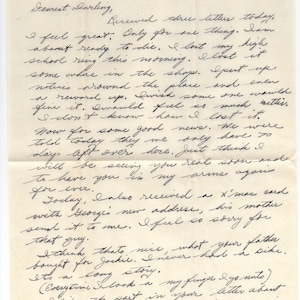 Dearest Darling,
Received three letters today,
I feel great. Only for one thing. I am
about ready to die. I lost my high
school ring this morning. I lost it
some where in the shop. I put up
notices around the place and even
a reward up. I wish some one would
find it. I would feel so much better.
I don't know how I lost it.
Now for some good news. We were
told today they only have 30
days left over here. Just think I
will be seeing you real soon and
to have you in my arms again
for ever.
Today, I also received a X'mas card
with George's new address, his mother
send it to me. I feel so sorry for
that guy.
I think thats nice, what your father
bought for Jackie. I never had a bike.
Its a long story.
(Everytime I look a my finger I go nuts)
the part in your letter about